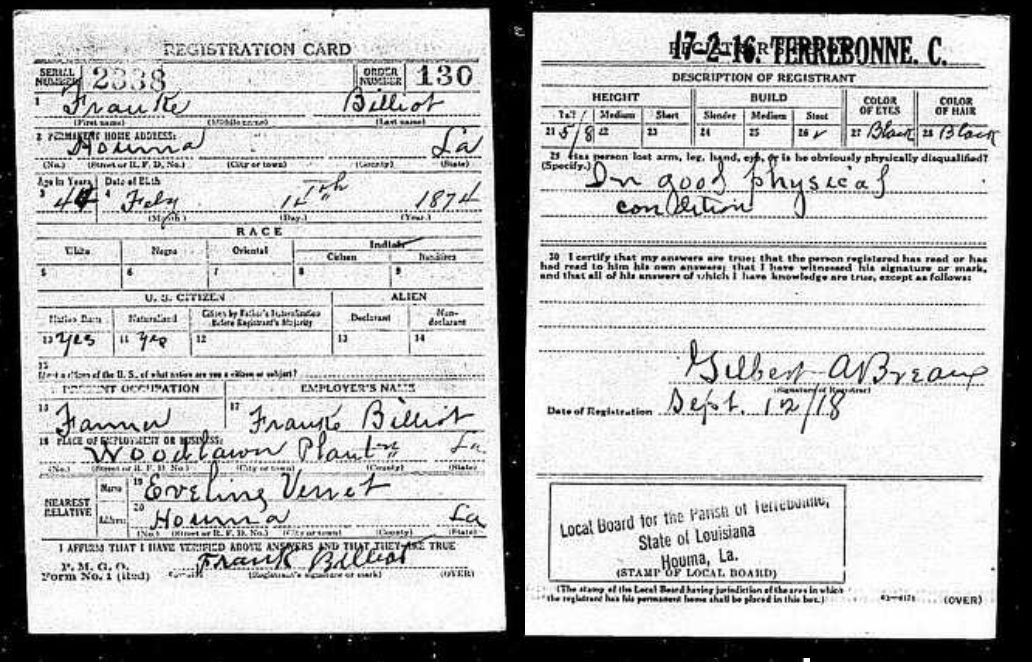 REGISTRATION CARD
SERIAL NUMBER 2338 ORDER NUMBER 130
1 Franke Billiot
(First name) (Middle name) (Last name)
2 PERMANENT HOME ADDRESS:
Houma La
(No.) (Street or R. F. D. No.) (City or town) (County) (State)
Age in Years Date of Birth
3 44 4 Feby 14th 1874
(Month) (Day.) (Year.)
RACE
White Negro Oriental Indian
Citizen
5 6 7 8 9
U. S. CITIZEN ALIEN
Native Born Naturalized Citizen by Father's Naturalization Before Registrant's Majority Declarant Non-declarant
10 yes 11 yes 12 13 14
15
If not a citizen of the U. S., of what nation are you a citizen or subject?
PRESENT OCCUPATION EMPLOYER'S NAME
16 Farmer 17 Franke Billiot
18 PLACE OF EMPLOYMENT OR BUSINESS:
Woodlawn Plantn La
(No.) (Street or R. F. D. No.) (City or town) (County) (State)
NEAREST RELATIVE
Name 19 Eveline Verret
Address 20 Houma La
(No.) (Street or R. F. D. No.) (City or town) (County) (State)
I AFFIRM THAT I HAVE VERIFIED ABOVE ANSWERS AND THAT THEY ARE TRUE
P. M. G. O.
Form No. 1 (Red) Frank Billiot
(Registrant's signature or mark) (OVER)
17-2-16. TERREBONNE. C.
DESCRIPTION OF REGISTRANT
HEIGHT BUILD COLOR OF EYES COLOR OF HAIR
Tall Medium Short Slender Medium Stout
21 5/8 22 23 24 25 26 ✓ 27 Black 28 Black
29 Has person lost arm, leg, hand, eye, or is he obviously physically disqualified?
(Specify.) In good physical
condition
30 I certify that my answers are true; that the person registered has read or has
had read to him his own answers; that I have witnessed his signature or mark,
and that all of his answers of which I have knowledge are true, except as follows:
Gilbert A Breaux
(Signature of Registrar)
Date of Registration Sept. 12/18
Local Board for the Parish of Terrebonne,
State of Louisiana
Houma, La.
(STAMP OF LOCAL BOARD)
(The stamp of the Local Board having jurisdiction of the area in which
the registrant has his permanent home shall be placed in this box.)
(OVER)